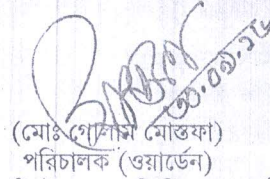 ৩০.০৯.১৮
(মোঃ গোলাম মোস্তফা)
পরিচালক (ওয়ার্ডেন)